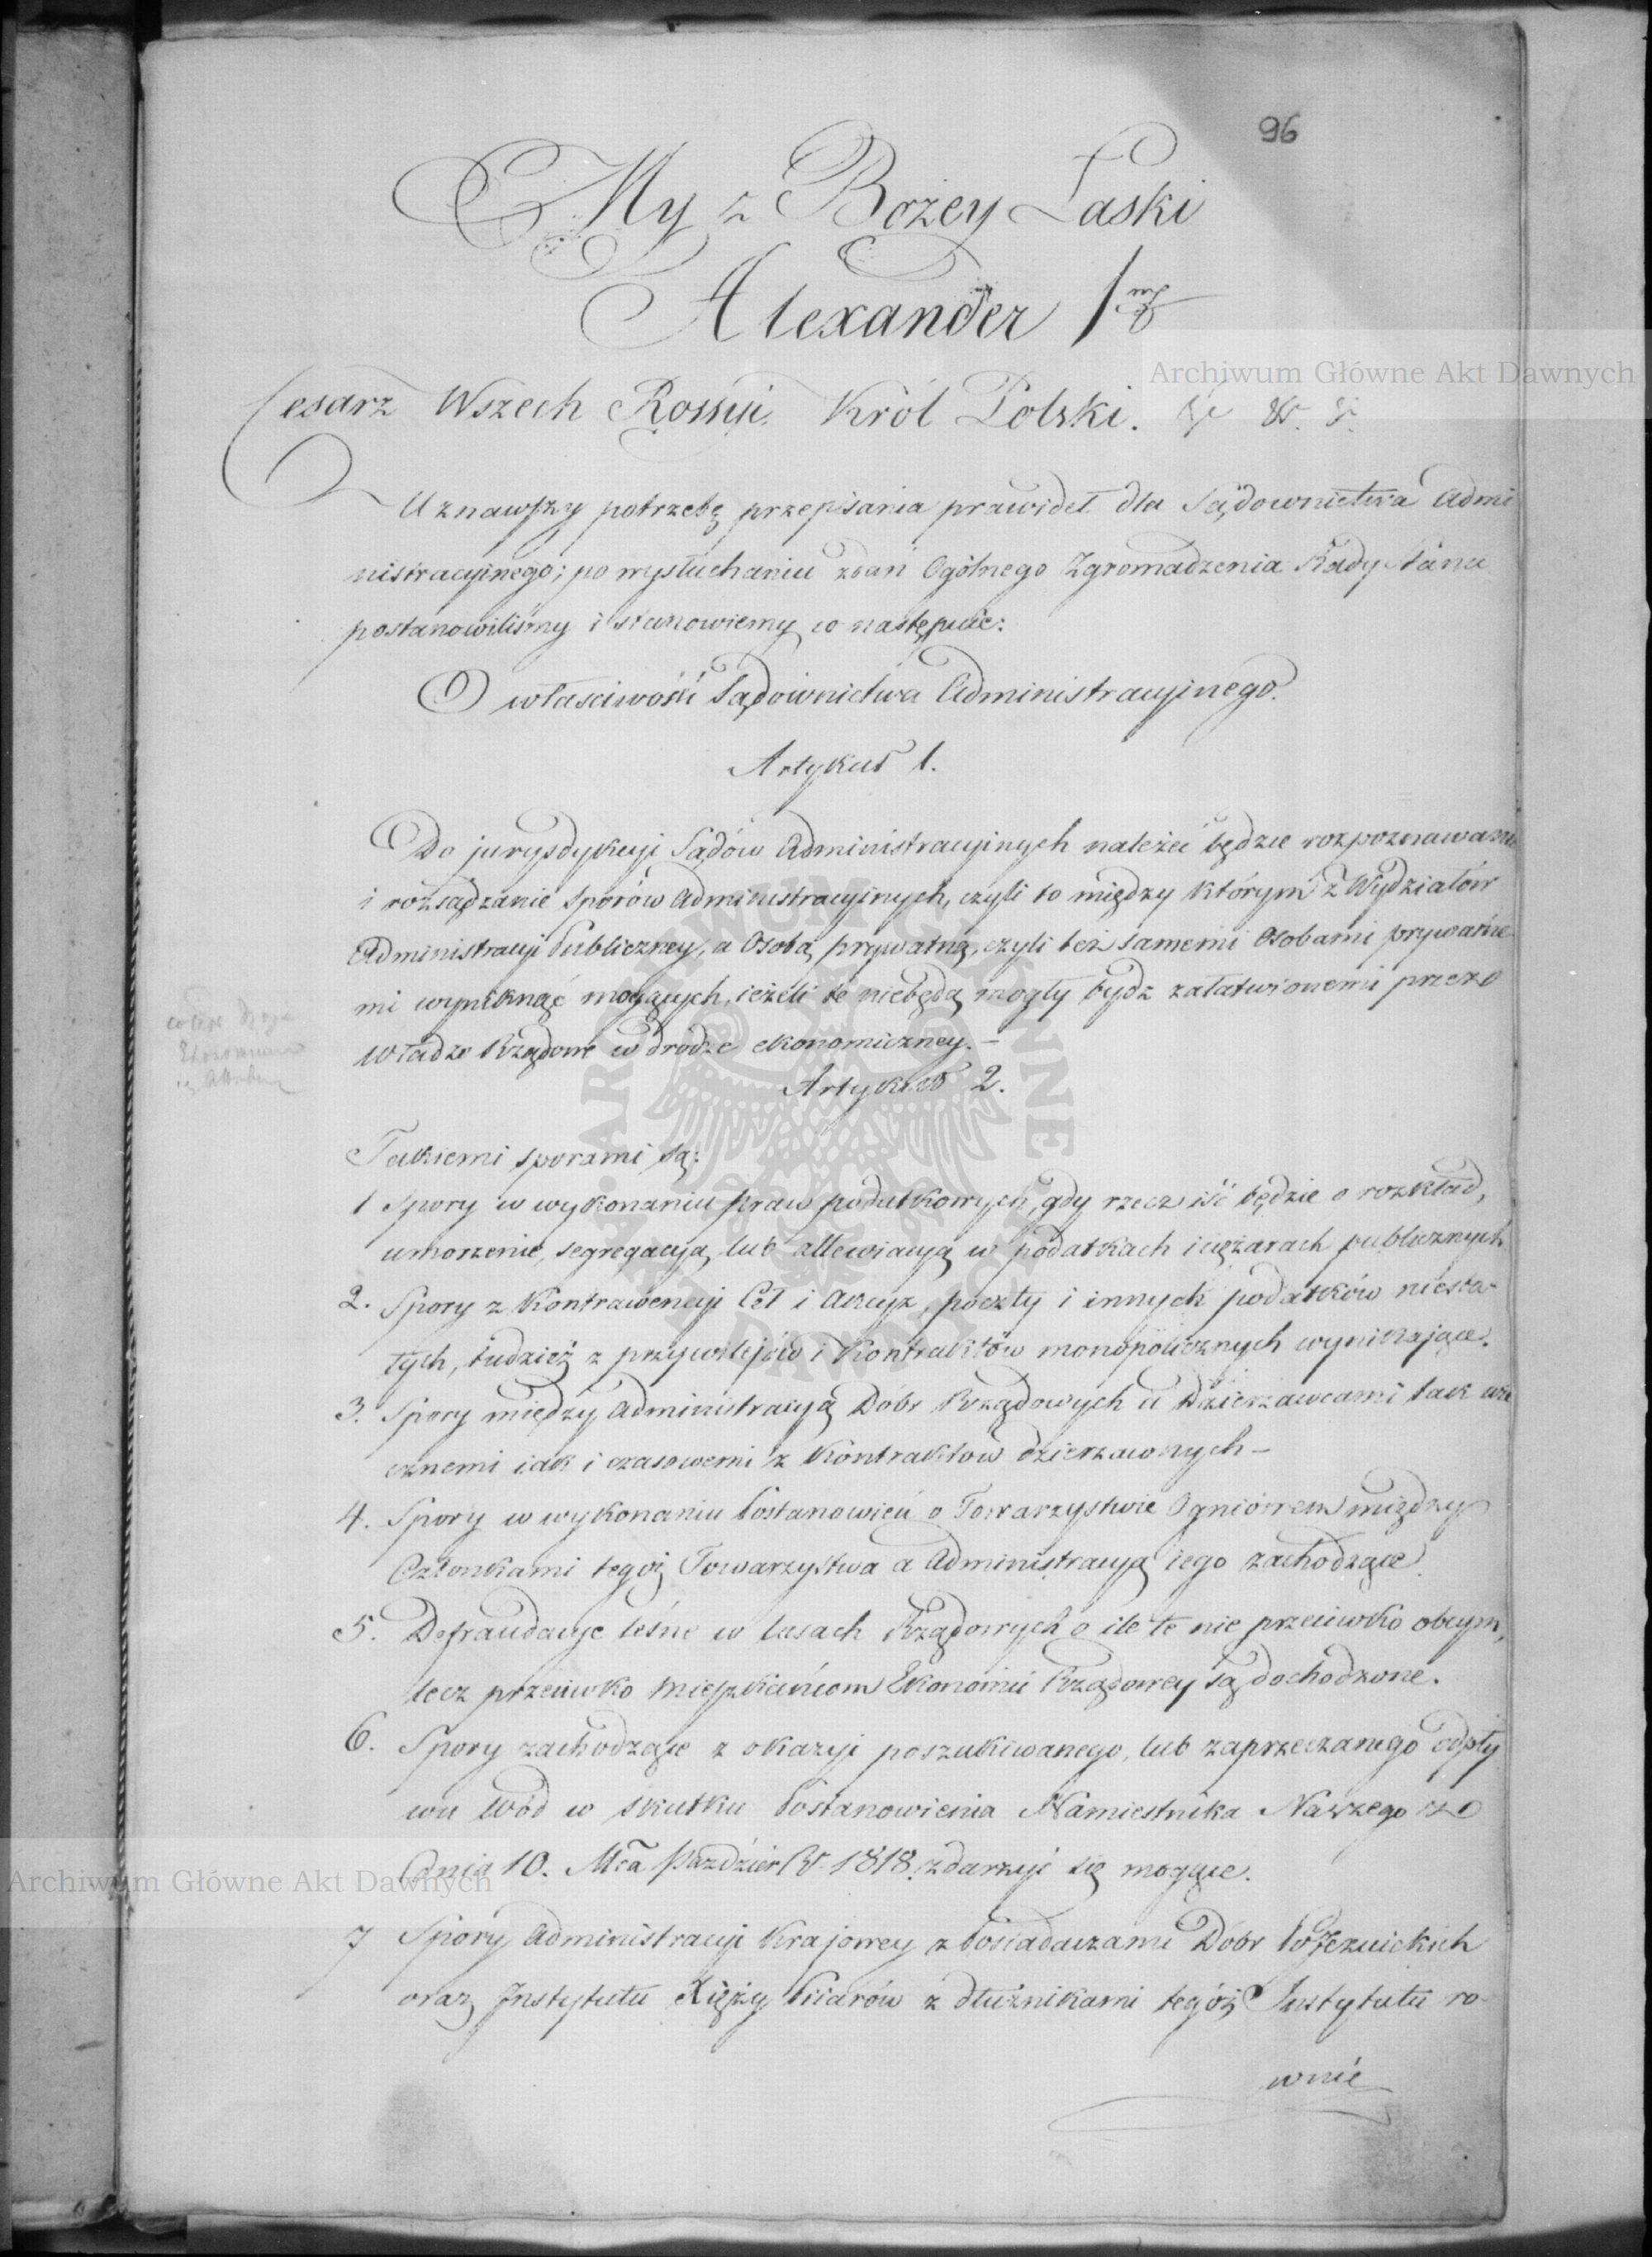 96
My z Bożey Łaski
Alexander 1wszy
Cesarz Wszech Rossyi. Król Polski. &c &c &c
Uznawszy potrzebę przepisania prawideł dla Sądownictwa Admi
nistracyinego; po wysłuchaniu zdań Ogólnego Zgromadzenia Rady Stanu
postanowiliśmy i stanowiemy co następuie:
O właściwości Sądownictwa Administracyinego.
Artykuł 1.
Do jurysdykcyi Sądów Administracyinych należeć będzie rozpoznawanie
i rozsądzanie sporów Administracyinych, czyli to między którym z Wydziałów
Administracyi Publiczney, a Osobą prywatną, czyli też samemi Osobami prywatne
mi wyniknąć mogących, ieżeli te niebędą mogły bydź załatwionemi przez
Władze Rządowe w drodze ekonomiczney. –
Artykuł 2.
Takiemi sporami są:
1 Spory w wykonaniu praw podatkowych, gdy rzecz iść będzie o rozkład,
umorzenie, segregacyą, lub allewiacyą w podatkach i ciężarach publicznych
2. Spory z Kontrawencyi Ceł i Akcyz, poczty i innych podatków niesta-
łych, tudzież z przywilejów i Kontraktów monopolicznych wynikające.
3. Spory między Administracyą Dóbr Rządowych a Dzierżawcami tak wie
cznemi iak i czasowemi z Kontraktów dzierżawnych –
4. Spory w wykonaniu Postanowień o Towarzystwie Ogniowem między
Członkami tegoż Towarzystwa a Administracyą iego zachodzące.
5. Defraudacye leśne w lasach Rządowych o ile te nie przeciwko obcym,
lecz przeciwko Mieszkańcom Ekonomii Rządowey są dochodzone.
6. Spory zachodzące z okazyi poszukiwanego, lub zaprzeczanego odpły
wu wód w skutku Postanowienia Namiestnika Naszego z
dnia 10. Mca Paździer R. 1818. zdarzyć się mogące.
7 Spory Administracyi Krajowey z Posiadaczami Dóbr Pojezuickich
oraz Instytutu Xięży Piarów z dłużnikami tegoż Instytutu ro-
wnie
Archiwum Główne Akt Dawnych
Archiwum Główne Akt Dawnych